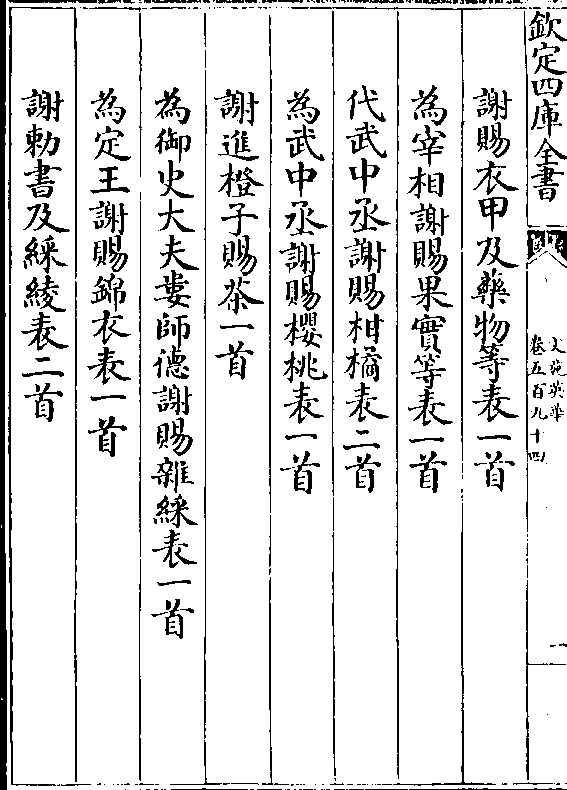 欽定四庫全書
文苑英華
卷五百九十四
一
謝賜衣甲及藥物等表一首
為宰相謝賜果實等表一首
代武中丞謝賜柑橘表二首
為武中丞謝賜櫻桃表一首
謝進橙子賜茶一首
為御史大夫婁師德謝賜雜綵表一首
為定王謝賜錦衣表一首
謝勅書及綵綾表二首